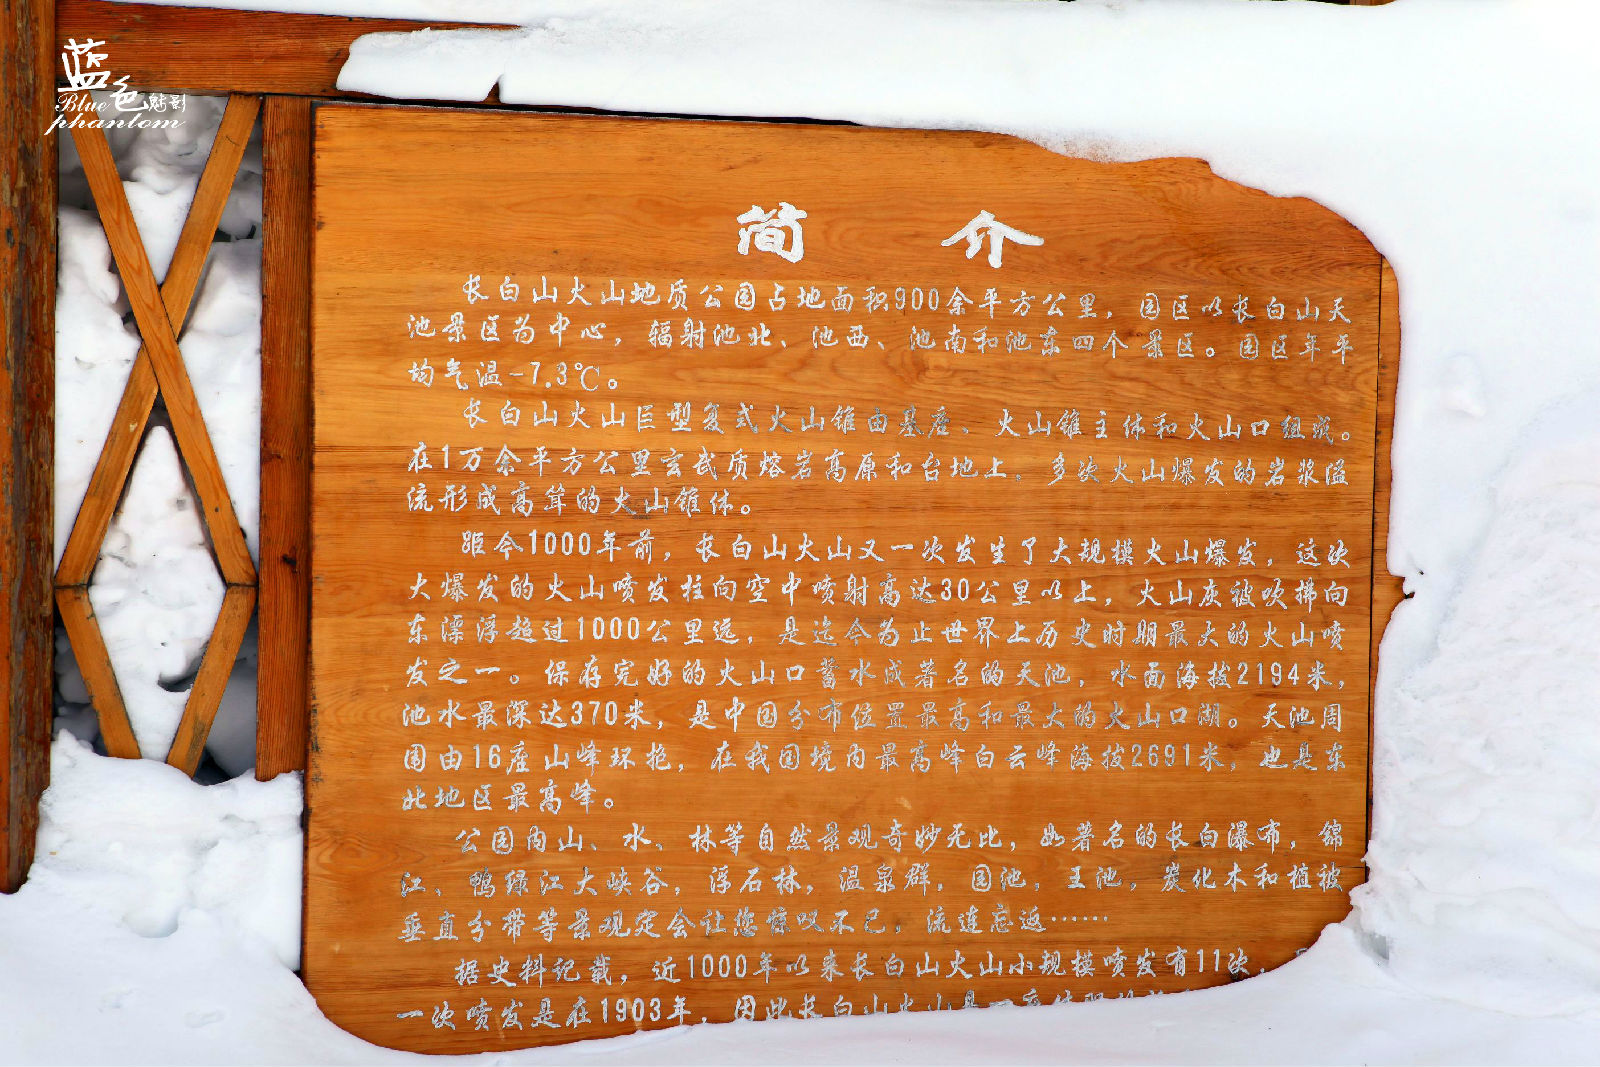 蓝色魅影
Blue
phantom
简 介
长白山火山地质公园占地面积900余平方公里，园区以长白山天
池景区为中心，辐射池北、池西、池南和池东四个景区。园区年平
均气温-7.3℃。
长白山火山巨型复式火山锥由基座、火山锥主体和火山口组成。
在1万余平方公里玄武质熔岩高原和台地上，多次火山爆发的岩浆溢
流形成高耸的火山锥体。
距今1000年前，长白山火山又一次发生了大规模火山爆发，这次
大爆发的火山喷发柱向空中喷射高达30公里以上，火山灰被吹拂向
东漂浮超过1000公里远，是迄今为止世界上历史时期最大的火山喷
发之一。保存完好的火山口蓄水成著名的天池，水面海拔2194米，
池水最深达370米，是中国分布位置最高和最大的火山口湖。天池周
围由16座山峰环抱，在我国境内最高峰白云峰海拔2691米，也是东
北地区最高峰。
公园内山、水、林等自然景观奇妙无比，如著名的长白瀑布，锦
江、鸭绿江大峡谷，浮石林，温泉群，园池，王池，炭化木和植被
垂直分带等景观定会让您惊叹不已，流连忘返……
据史料记载，近1000年以来长白山火山小规模喷发有11次，
一次喷发是在1903年，因此长白山火山是一座休眠